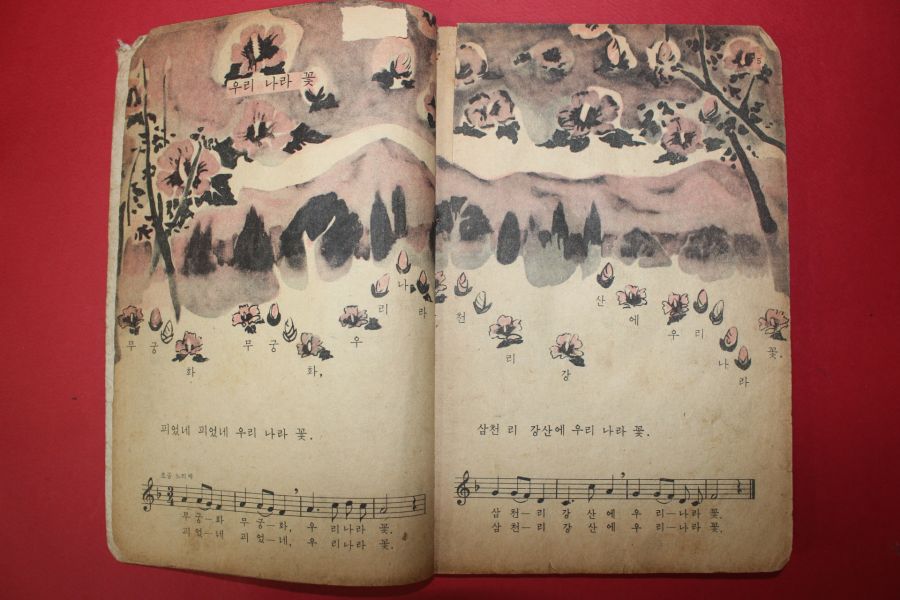 우리 나라 꽃
무궁화 무궁화, 우리 나라
피었네 피었네 우리 나라 꽃.
조금 느리게
무궁—화 무궁—화, 우 리나라 꽃.
피었—네 피었—네, 우 리나라 꽃.
5
삼천 리 강산에 우리 나라 꽃.
삼천—리 강 산 에 우 리—나라 꽃.
삼천—리 강 산 에 우 리—나라 꽃.